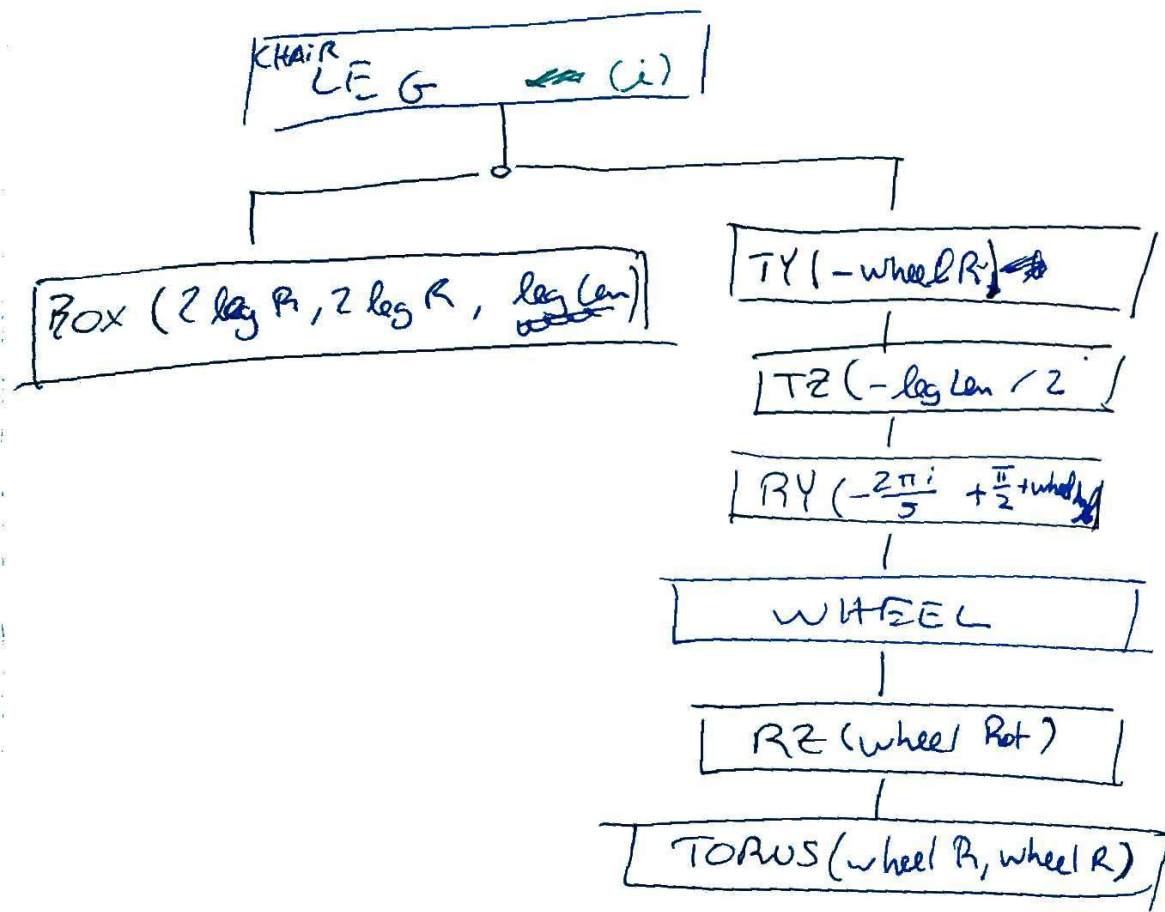 CHAIR
LEG (i)
BOX (2 leg R, 2 leg R, leg Len)
TY (-wheel R)
TZ (-leg Len / 2
RY (-2πi/5 + π/2 +
WHEEL
RZ (wheel Rot)
TORUS (wheel R, wheel R)